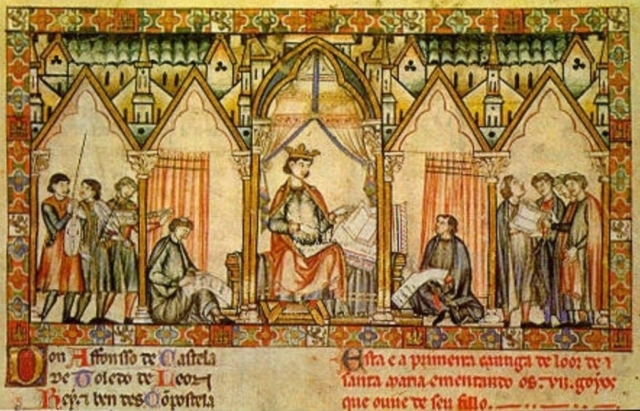 Don Affonsso de Castela
de Toledo de Leon
Rey ⁊ ben des Cōpostela
Esta e a primeira cantiga de loor de
santa maria ementando os .vii. goyos
que ouue de seu fillo.